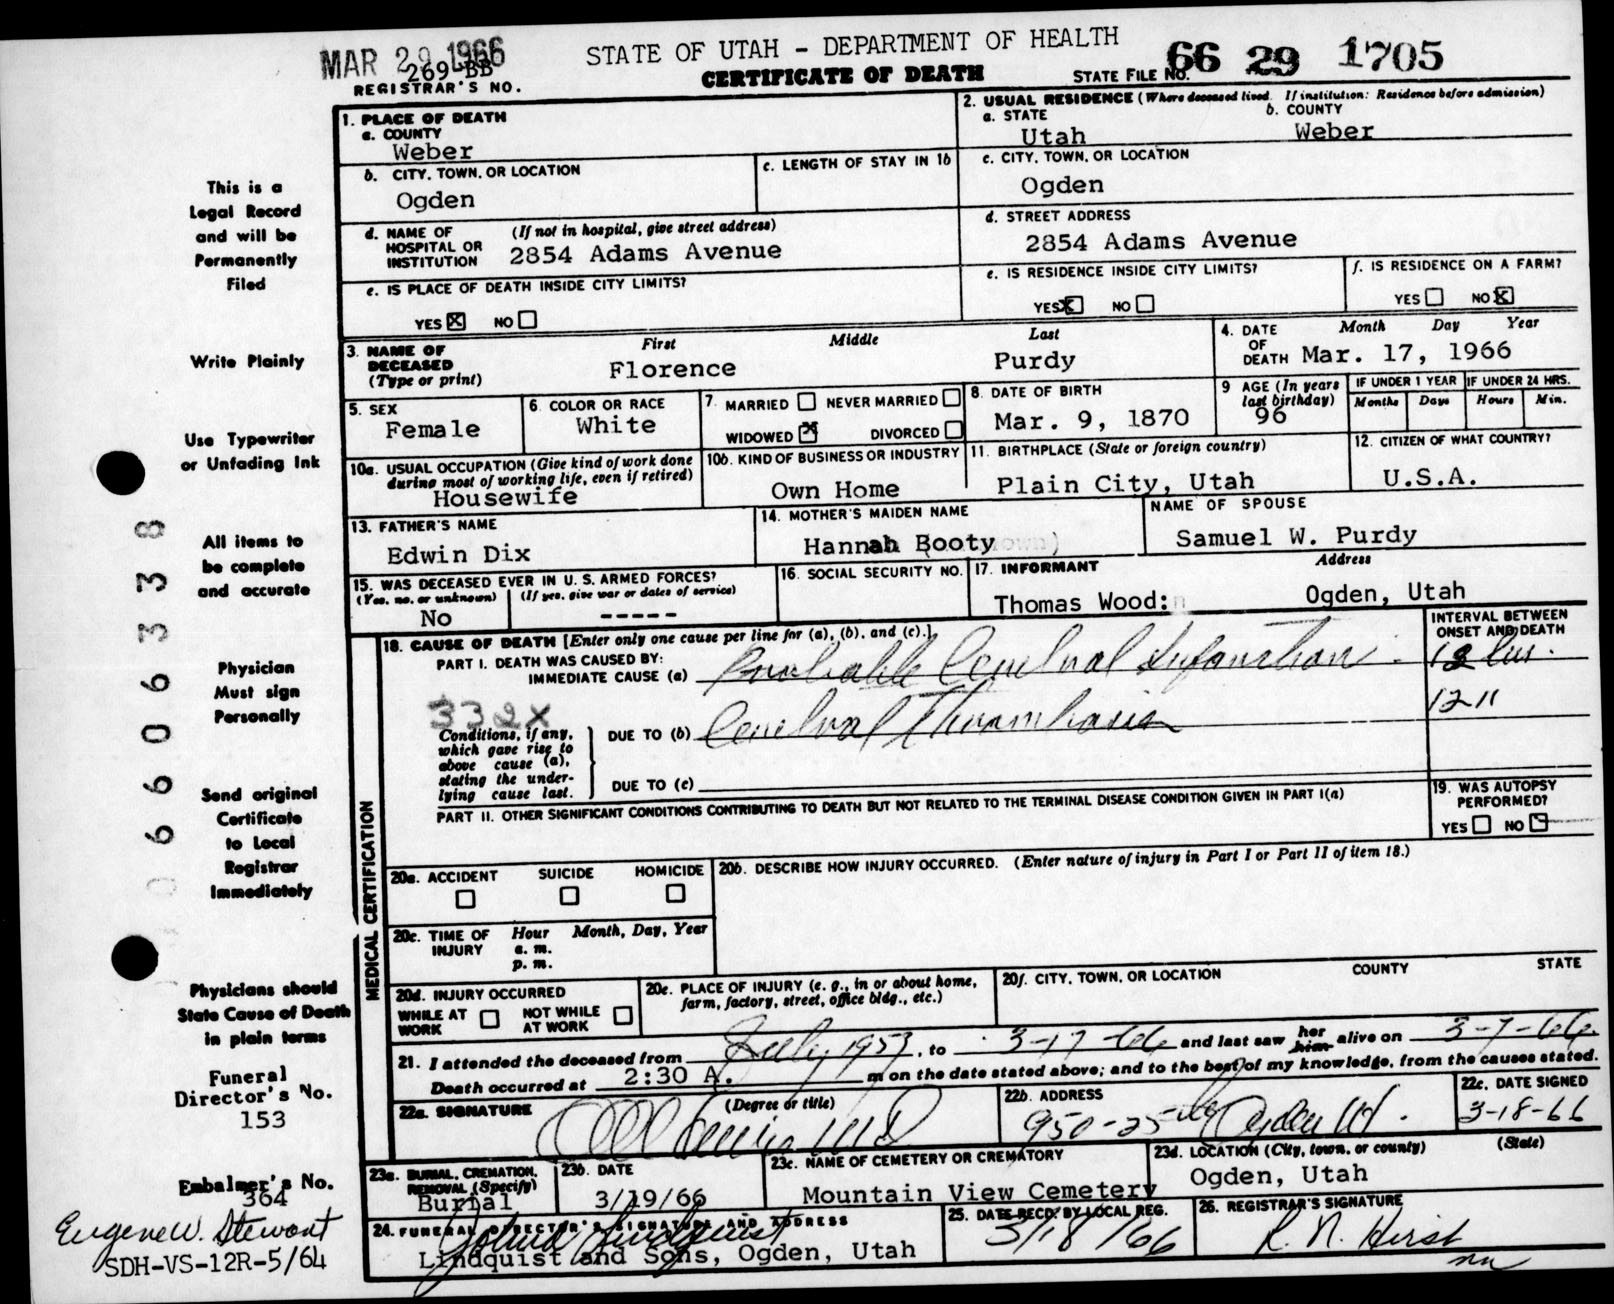 MAR 29 1966
269 BB
REGISTRAR'S NO.
STATE OF UTAH - DEPARTMENT OF HEALTH
CERTIFICATE OF DEATH
STATE FILE NO. 66 29 1705
This is a
Legal Record
and will be
Permanently
Filed
Write Plainly
Use Typewriter
or Unfading Ink
All items to
be complete
and accurate
Physician
Must sign
Personally
Send original
Certificate
to Local
Registrar
Immediately
Physicians should
State Cause of Death
in plain terms
Funeral
Director's No.
153
Embalmer's No.
364
Eugene W. Stewart
SDH-VS-12R-5/64
06606338
1. PLACE OF DEATH
a. COUNTY
Weber
2. USUAL RESIDENCE (Where deceased lived. If institution: Residence before admission)
a. STATE b. COUNTY
Utah Weber
b. CITY, TOWN, OR LOCATION
Ogden
c. LENGTH OF STAY IN 1b
c. CITY, TOWN, OR LOCATION
Ogden
d. NAME OF (If not in hospital, give street address)
HOSPITAL OR
INSTITUTION 2854 Adams Avenue
d. STREET ADDRESS
2854 Adams Avenue
e. IS PLACE OF DEATH INSIDE CITY LIMITS?
YES X NO
e. IS RESIDENCE INSIDE CITY LIMITS?
YES X NO
f. IS RESIDENCE ON A FARM?
YES NO X
3. NAME OF
DECEASED
(Type or print)
First Middle Last
Florence Purdy
4. DATE
OF
DEATH
Month Day Year
Mar. 17, 1966
5. SEX
Female
6. COLOR OR RACE
White
7. MARRIED NEVER MARRIED
WIDOWED X DIVORCED
8. DATE OF BIRTH
Mar. 9, 1870
9 AGE (In years
last birthday)
96
IF UNDER 1 YEAR
Months Days
IF UNDER 24 HRS.
Hours Min.
10a. USUAL OCCUPATION (Give kind of work done
during most of working life, even if retired)
Housewife
10b. KIND OF BUSINESS OR INDUSTRY
Own Home
11. BIRTHPLACE (State or foreign country)
Plain City, Utah
12. CITIZEN OF WHAT COUNTRY?
U.S.A.
13. FATHER'S NAME
Edwin Dix
14. MOTHER'S MAIDEN NAME
Hannah Booty
NAME OF SPOUSE
Samuel W. Purdy
15. WAS DECEASED EVER IN U. S. ARMED FORCES?
(Yes, no, or unknown) (If yes, give war or dates of service)
No -----
16. SOCIAL SECURITY NO.
17. INFORMANT Address
Thomas Wood: Ogden, Utah
MEDICAL CERTIFICATION
18. CAUSE OF DEATH [Enter only one cause per line for (a), (b), and (c).]
INTERVAL BETWEEN
ONSET AND DEATH
PART I. DEATH WAS CAUSED BY:
IMMEDIATE CAUSE (a) Probable Cerebral Infarction 12 hrs.
332X
Conditions, if any,
which gave rise to
above cause (a),
stating the under-
lying cause last.
DUE TO (b) Cerebral Thrombosis 12 "
DUE TO (c)
PART II. OTHER SIGNIFICANT CONDITIONS CONTRIBUTING TO DEATH BUT NOT RELATED TO THE TERMINAL DISEASE CONDITION GIVEN IN PART I(a)
19. WAS AUTOPSY
PERFORMED?
YES NO
20a. ACCIDENT SUICIDE HOMICIDE
20b. DESCRIBE HOW INJURY OCCURRED. (Enter nature of injury in Part I or Part II of item 18.)
20c. TIME OF Hour Month, Day, Year
INJURY a. m.
p. m.
20d. INJURY OCCURRED
WHILE AT NOT WHILE
WORK AT WORK
20e. PLACE OF INJURY (e. g., in or about home,
farm, factory, street, office bldg., etc.)
20f. CITY, TOWN, OR LOCATION COUNTY STATE
21. I attended the deceased from July, 1953, to 3-17-66 and last saw her him alive on 3-7-66
Death occurred at 2:30 A. m on the date stated above; and to the best of my knowledge, from the causes stated.
22a. SIGNATURE (Degree or title)
MD
22b. ADDRESS
950-25th Ogden Ut.
22c. DATE SIGNED
3-18-66
23a. BURIAL, CREMATION,
REMOVAL (Specify)
Burial
23b. DATE
3/19/66
23c. NAME OF CEMETERY OR CREMATORY
Mountain View Cemetery
23d. LOCATION (City, town, or county) (State)
Ogden, Utah
24. FUNERAL DIRECTOR'S SIGNATURE AND ADDRESS
Lindquist and Sons, Ogden, Utah
25. DATE RECD. BY LOCAL REG.
3/18/66
26. REGISTRAR'S SIGNATURE
R. N. Hirst